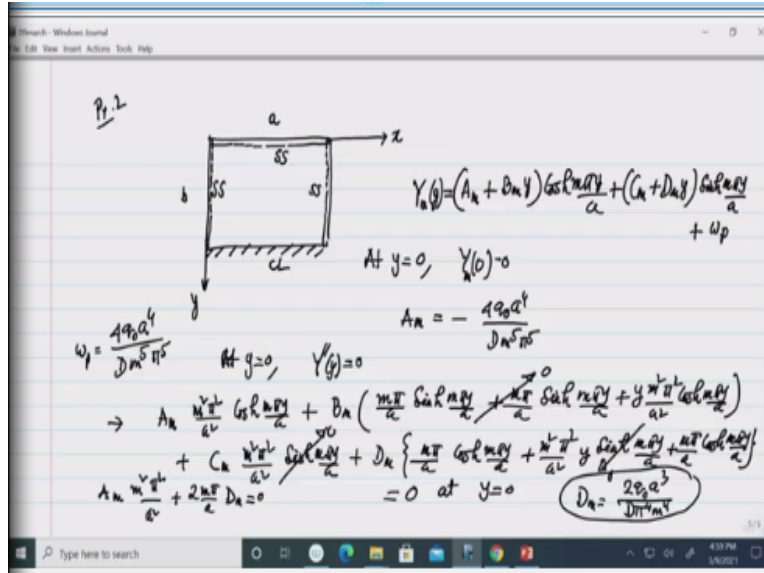 Windows Journal
File Edit View Insert Actions Tools Help
Pr. 2
a
x
SS
b
SS
SS
CL
y
Y_m(y) = (A_m + B_m y) Cosh mπy/a + (C_m + D_m y) Sinh mπy/a
+ w_p
At y=0, Y_m(0)=0
A_m = - 4q_0a^4 / Dm^5π^5
w_p = 4q_0a^4 / Dm^5π^5
At y=0, Y''(y)=0
→ A_m m^2π^2/a^2 Cosh mπy/a + B_m ( mπ/a Sinh mπy/a + mπ/a Sinh mπy/a + y m^2π^2/a^2 Cosh mπy/a )
0
+ C_m m^2π^2/a^2 Sinh mπy/a + D_m { mπ/a Cosh mπy/a + m^2π^2/a^2 y Sinh mπy/a + mπ/a Cosh mπy/a }
0
A_m m^2π^2/a^2 + 2mπ/a D_m = 0
= 0 at y=0
D_m = 2q_0a^3 / Dπ^4m^4
Type here to search
4:59 PM
3/9/2021